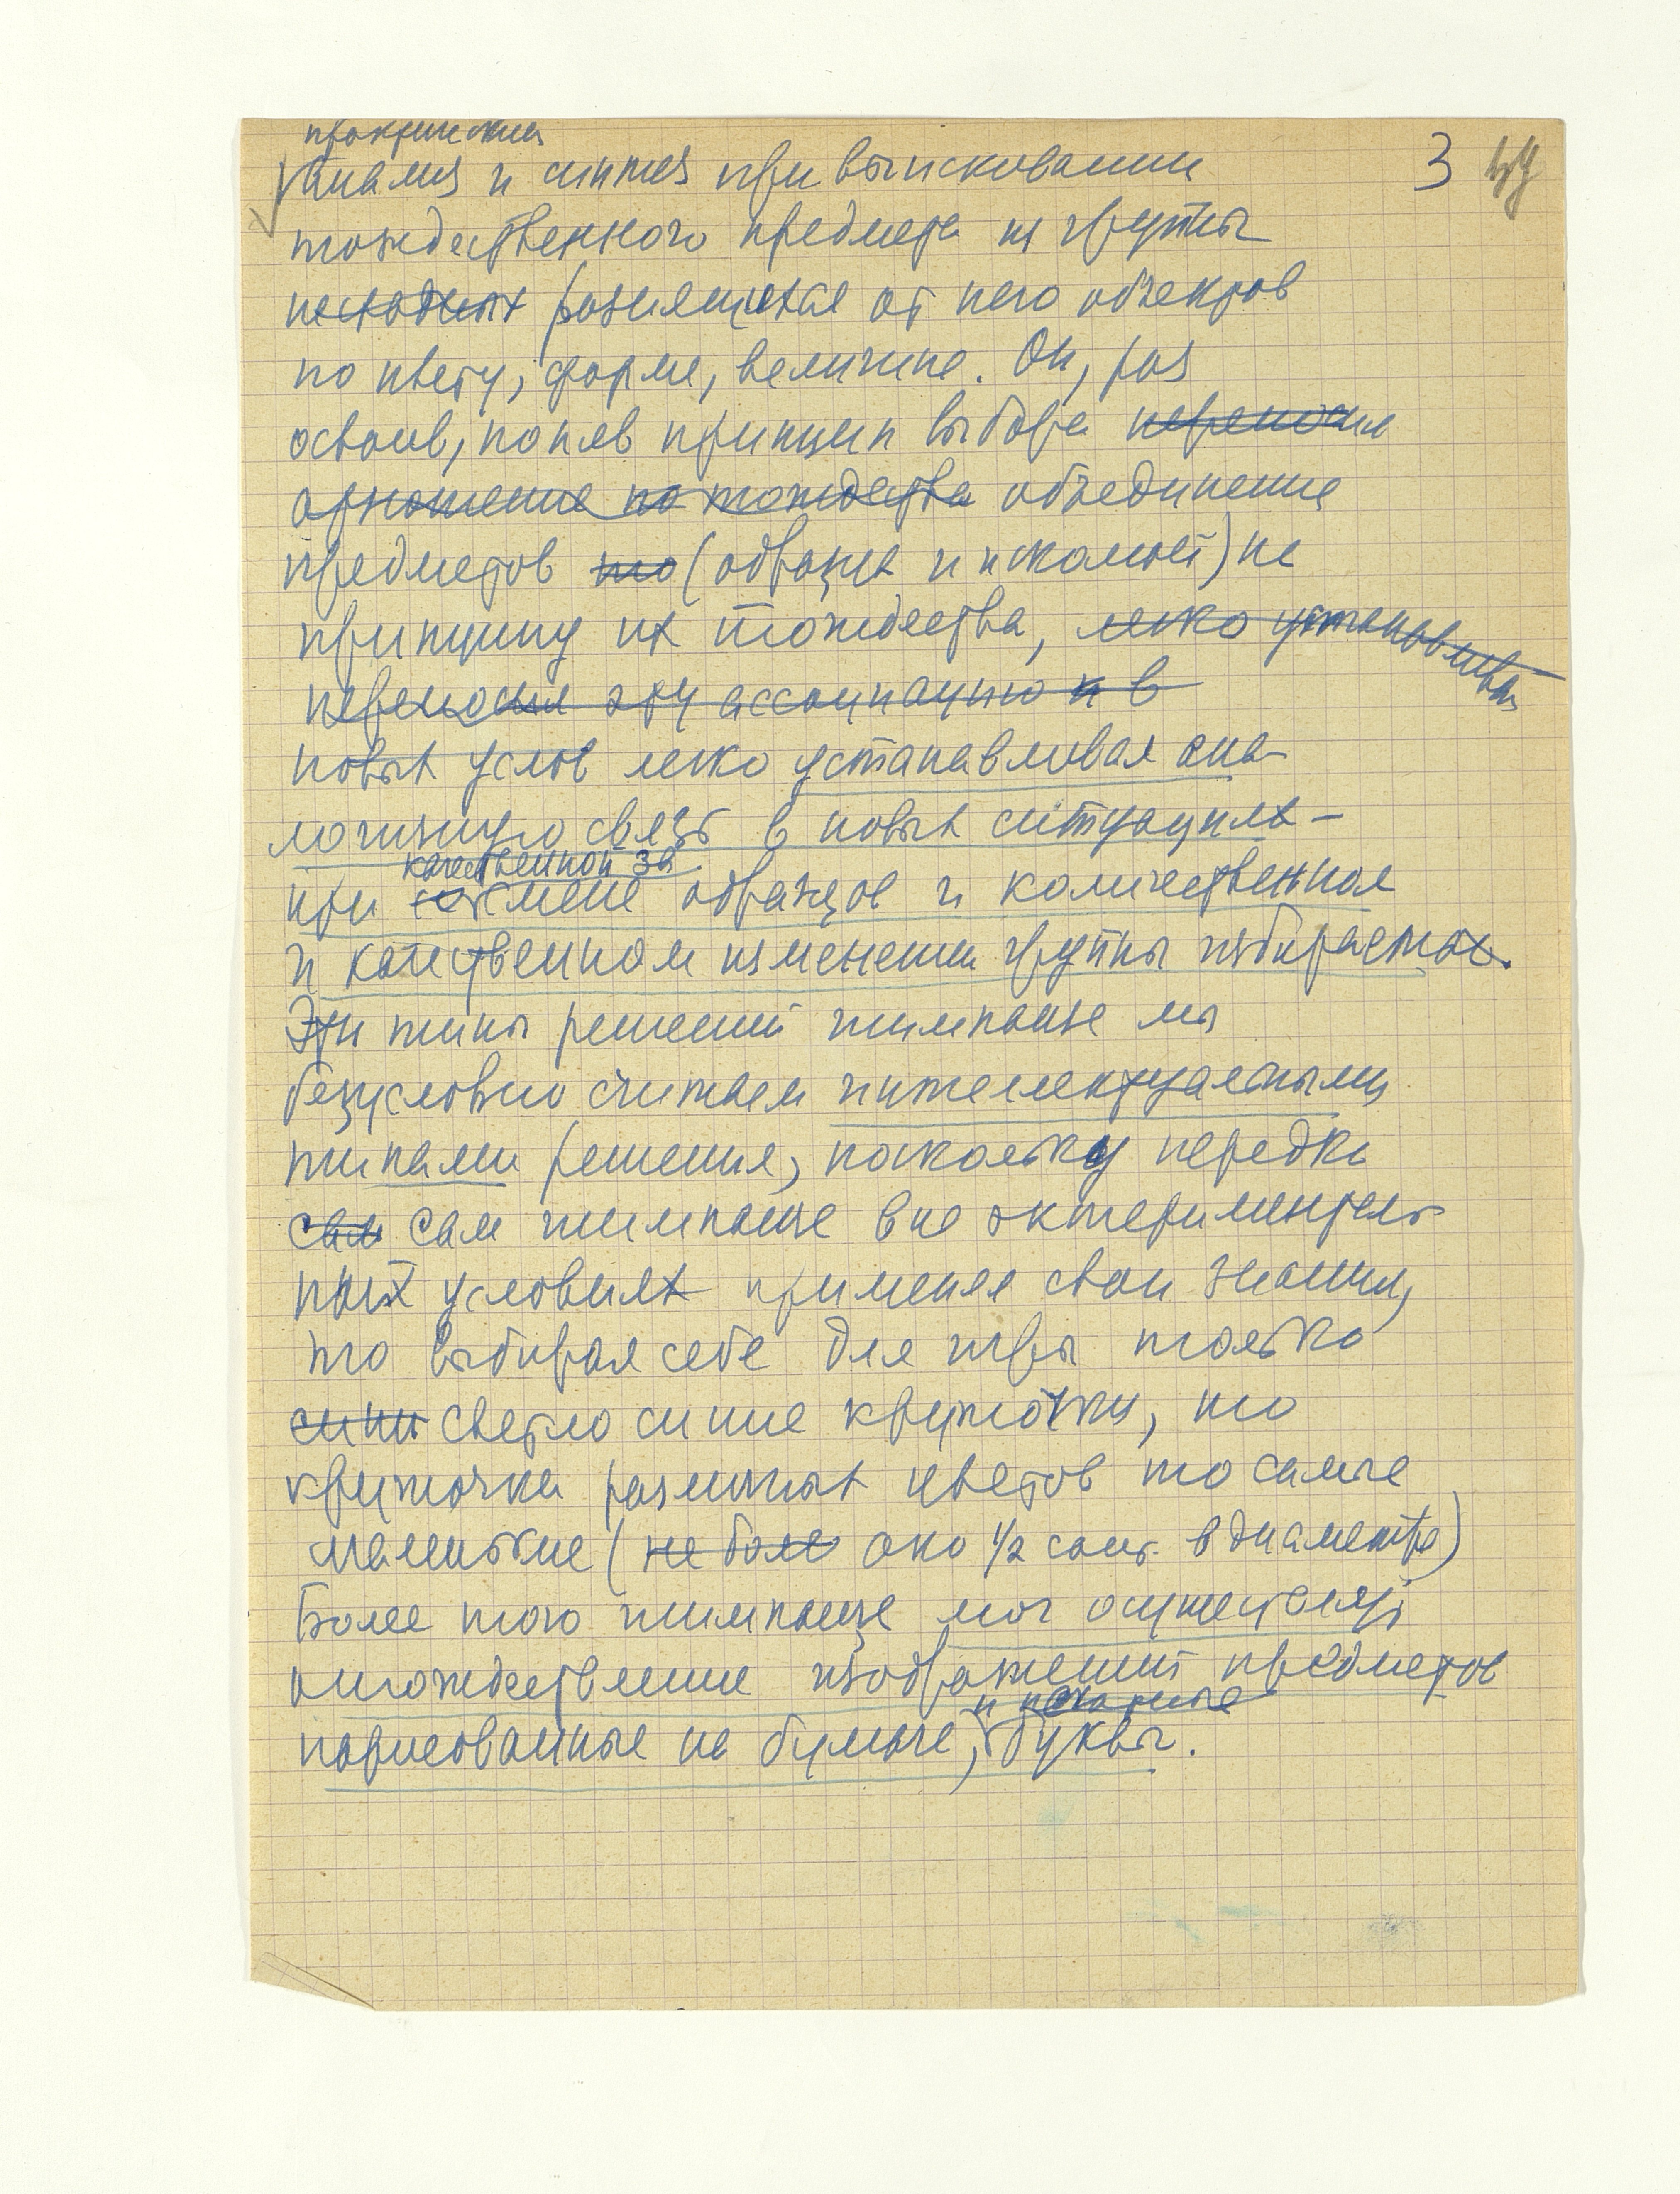 практический
анализ и синтез при выискивании 3
тождественного предмета из группы
несходных разнящихся от него объектов
по цвету, форме, величине. Он, раз
освоив, поняв принцип выбора переносил
отношение по тождества объединение
предметов по (образца и искомый) по
принципу их тождества, легко устанавливал
переносил эту ассоциацию и в
новых услов легко устанавливал ана-
логичную связь в новых ситуациях –
качественной за
при смене образцов и количественном
и качественном изменении группы избираемых.
Эти типы решений шимпанзе мы
безусловно считаем интеллектуальными
типами решения, поскольку нередко
сам сам шимпанзе в не эксперименталь
ных условиях применял свои знания,
то выбирая себе для игры только
сини светло синие кружочки, то
кружочки различных цветов то самые
маленькие (не боле око 1/2 сант. в диаметре)
Более того шимпанзе мог осуществлять
отождествление изображений предметов
и печатные
нарисованные на бумаге, буквы.